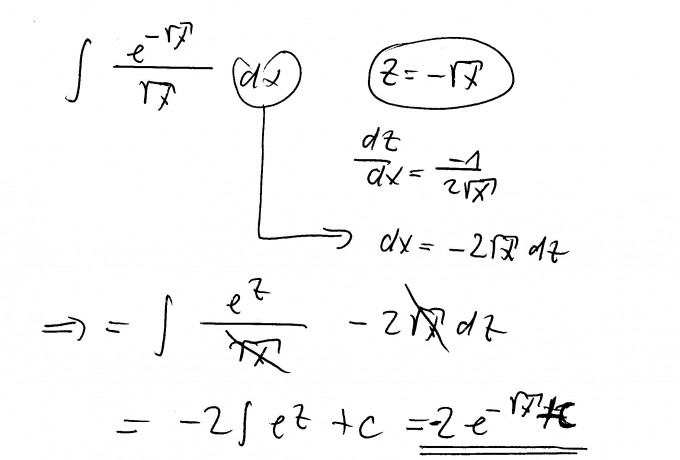 ∫ e^(-√x)/√x dx   z = -√x
dz/dx = -1/(2√x)
dx = -2√x dz
⇒ = ∫ e^z/√x - 2√x dz
= -2∫ e^z + c = -2 e^(-√x) + c